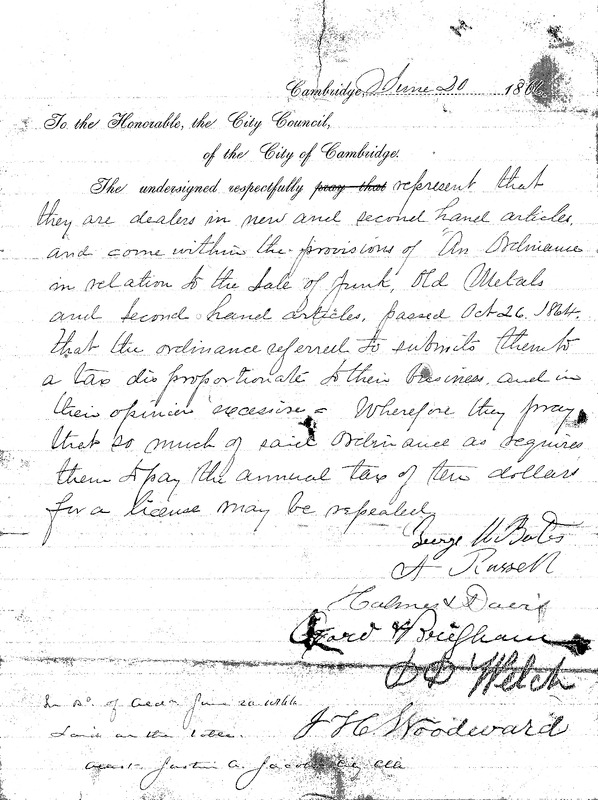 Cambridge, June 20 1866
To the Honorable, the City Council,
of the City of Cambridge.
The undersigned respectfully pray that represent that
they are dealers in new and second hand articles,
and come within the provisions of "An Ordinance
in relation to the Sale of Junk, Old Metals
and second hand articles, passed Oct 26. 1864.
that the ordinance referred to submits them to
a tax disproportionate to their business, and in
their opinion excessive = Wherefore they pray
that so much of said Ordinance as requires
them to pay the annual tax of ten dollars
for a license may be repealed.
George Bates
A Russell
Holmes & Davis
& Brigham
Welch
J H Woodward
In Bd. of Ald. June 20. 1866
Laid on the table.
Attest. Justin A. Jacobs City Clk